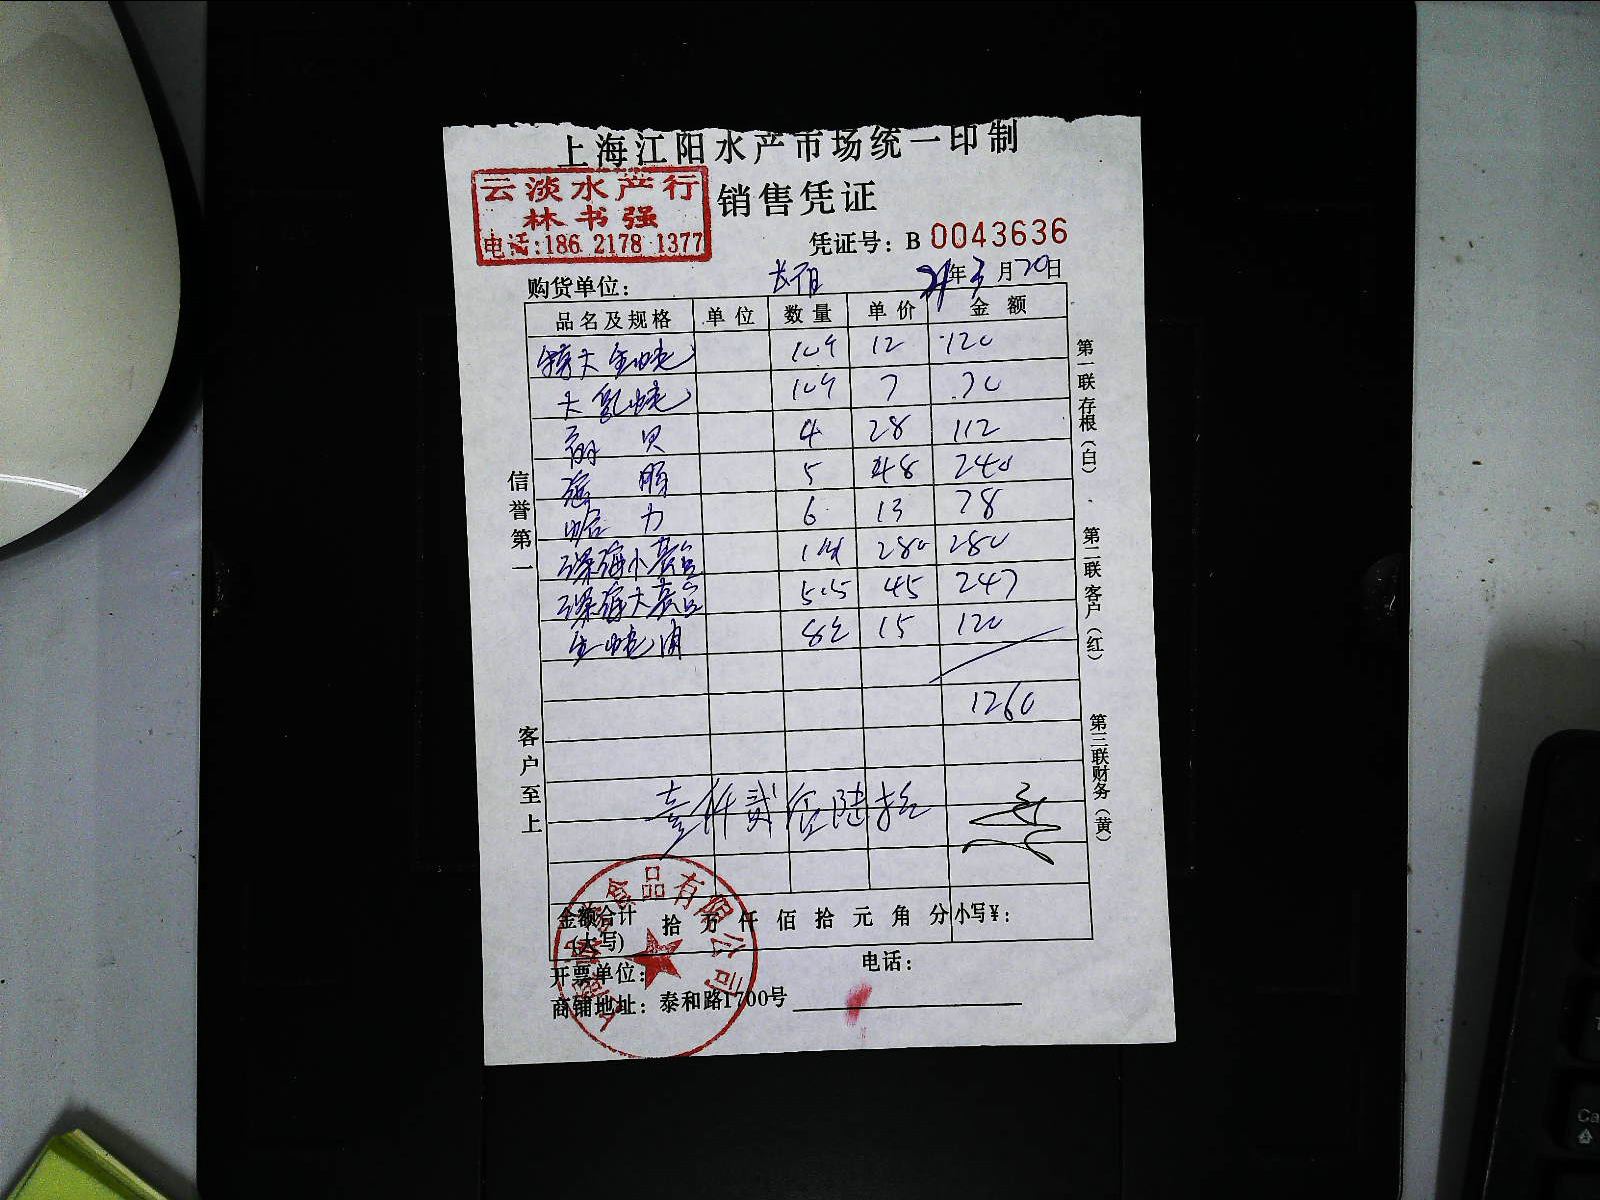 上海江阳水产市场统一印制
云淡水产行
林书强
电话:186 2178 1377
销售凭证
凭证号：B 0043636
购货单位：
21年3月20日
品名及规格 单位 数量 单价 金额
特大生蚝 12 120
大乳蚝 7 70
扇贝 4 28 112
海肠 5 48 240
蛤力 6 13 78
深海小 280 280
深海大 5.5 45 247
生蚝肉 8 15 120
1260
壹仟贰佰陆拾
金额合计(大写) 拾 万 仟 佰 拾 元 角 分 小写¥：
开票单位： 电话：
商铺地址：泰和路1700号
食品有限公司
信誉第一
客户至上
第一联存根（白）
第二联客户（红）
第三联财务（黄）